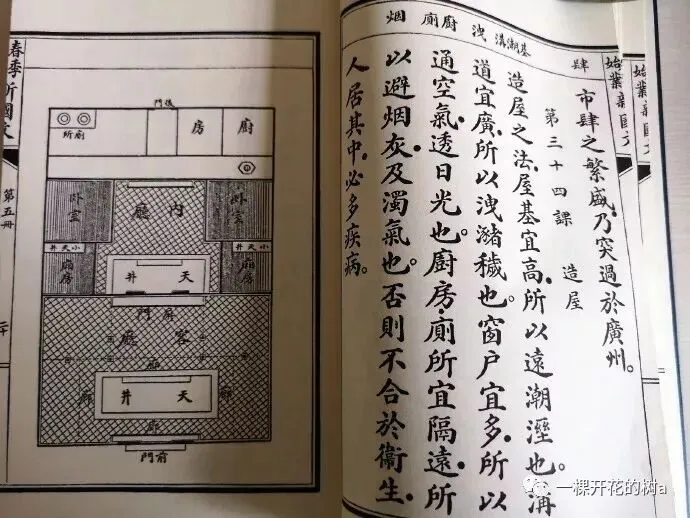 基潮溝洩廚廁烟
肆
市肆之繁盛，乃突過於廣州。
第三十四課 造屋
造屋之法，屋基宜高，所以遠潮溼也。溝
道宜廣，所以洩瀦穢也。窗戶宜多，所以
通空氣，透日光也。廚房，廁所宜隔遠，所
以避烟灰及濁氣也。否則不合於衞生，
人居其中，必多疾病。
始業新國文
始業新國文
門後
所廁
房
廚
卧室
廳內
卧室
井天小
井天小
廂房
井天
廂房
門屏
廳客
廊
廊
井天
廊
廊
門前
春季
國文
第五冊
一棵开花的树a